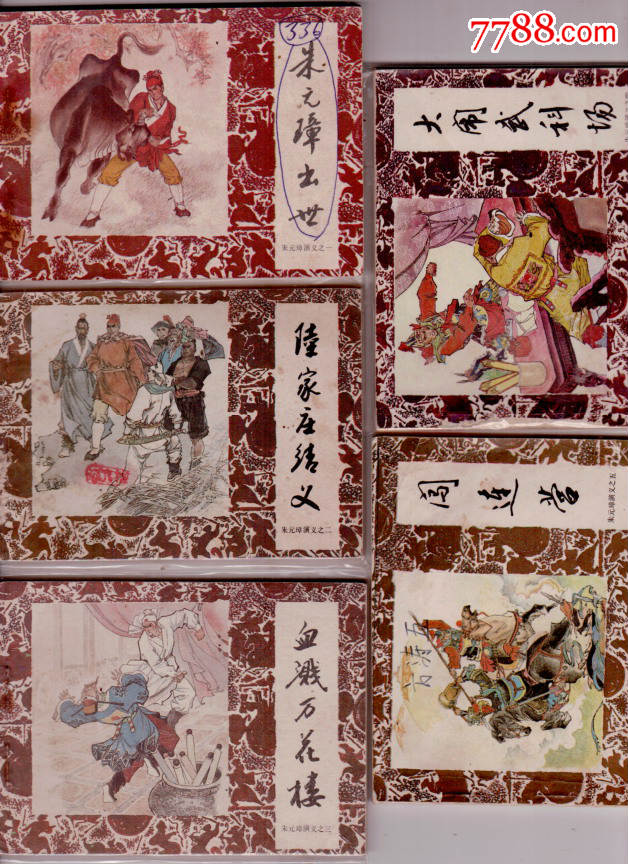 7788.com
336
朱元璋出世
朱元璋演义之一
陸家庄结义
朱元璋演义之二
血溅万花楼
朱元璋演义之三
大闹武科场
闯连营
朱元璋演义之五